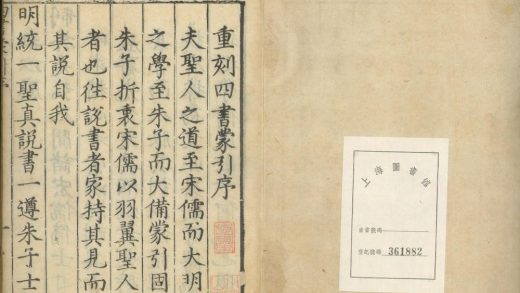 重刻四書蒙引序
夫聖人之道至宋儒而大明
之學至朱子而大備蒙引固
朱子折衷宋儒以羽翼聖人
者也徃說書者家持其見而
其說自我
明統一聖真說書一遵朱子士
上海圖書館
361882